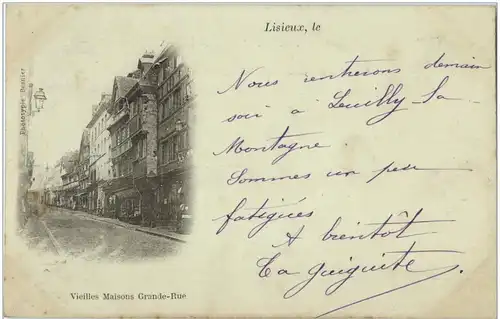 Lisieux, le
Phototypie Besnier
Nous rentrerons demain
soir à Leuilly la
Montagne
Sommes un peu
fatigués
A bientôt
Ta Guiguite
Vieilles Maisons Grande-Rue